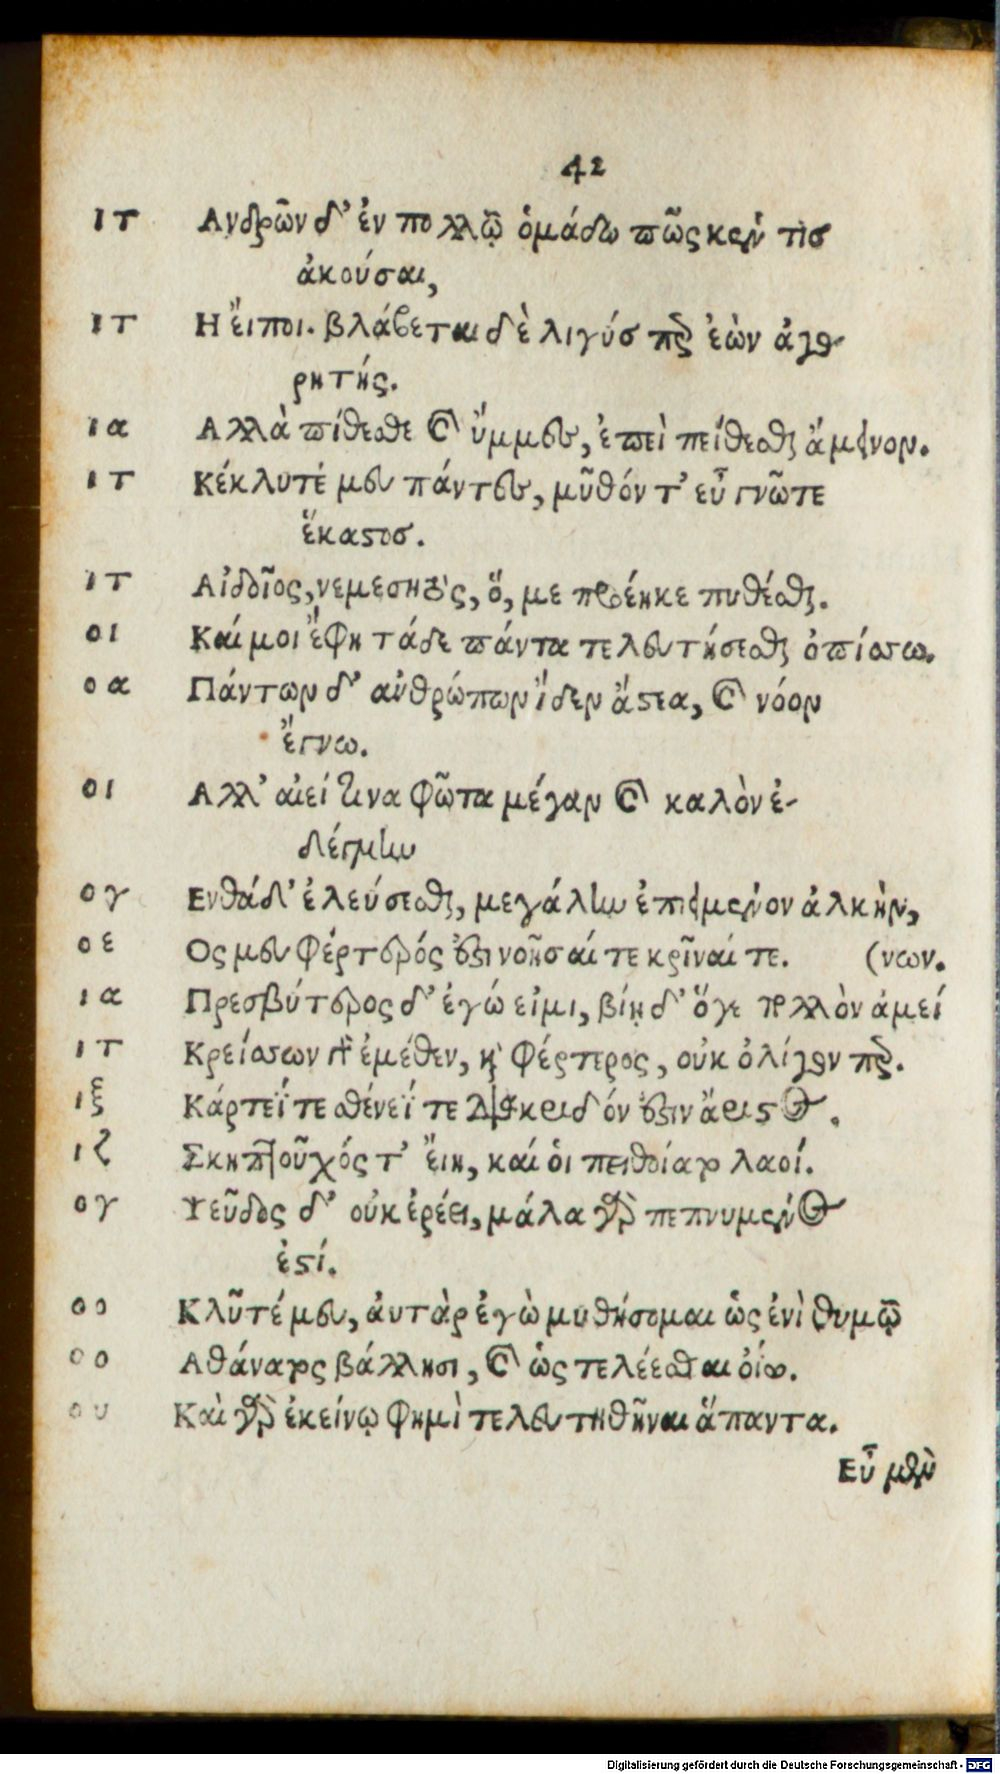 42
ιτ Ανδρῶν δ᾽ ἐν πολλῷ ὁμάδω πῶς κεν τὶσ
ἀκούσαι,
ιτ Η ἔιποι. βλάβεται δὲ λιγύσ περ ἐὼν ἀγο-
ρητής.
ια Αλλὰ πίθεσθε καὶ ὔμμες, ἐπεὶ πείθεσθαι ἄμεινον.
ιτ Κέκλυτέ μευ πάντες, μῦθόν τ᾽ εὖ γνῶτε
ἕκαστοσ.
ιτ Αἰδοῖος, νεμεσητὸς, ὅ, με προέηκε πυθέσθαι.
οι Καί μοι ἔφη τάδε πάντα τελευτήσεσθαι ὀπίσσω.
οα Πάντων δ᾽ ἀνθρώπων ἴδεν ἄστεα, καὶ νόον
ἔγνω.
οι Αλλ᾽ αἰεί τινα φῶτα μέγαν καὶ καλὸν ἐ-
δέγμην
ογ Ενθάδ᾽ ἐλεύσεσθαι, μεγάλην ἐπιειμένον ἀλκὴν,
οε Ος μευ φέρτερός ἐστι νοῆσαί τε κρῖναί τε. (νων.
ια Πρεσβύτερος δ᾽ ἐγώ εἰμι, βίῃ δ᾽ ὅγε πολλὸν ἀμεί
ιτ Κρείσσων εἰς ἐμέθεν, καὶ φέρτερος, οὐκ ὀλίγον περ.
ιξ Κάρτεΐ τε σθένεΐ τε διακριδόν ἐστιν ἄριστος.
ιζ Σκηπτοῦχός τ᾽ εἴη, καί ὁι πειθοίατο λαοί.
ογ Ψεῦδος δ᾽ οὐκ ἐρέει, μάλα γὰρ πεπνυμένος
ἐστί.
οο Κλῦτέ μευ, ἀυτὰρ ἐγὼ μυθήσομαι ὡς ἐνὶ θυμῷ
οο Αθάνατος βάλλησι, καὶ ὡς τελέεσθαι ὀίω.
ου Καὶ γὰρ ἐκείνῳ φημὶ τελευτηθῆναι ἅπαντα.
Εὖ μὲν
Digitalisierung gefördert durch die Deutsche Forschungsgemeinschaft - DFG